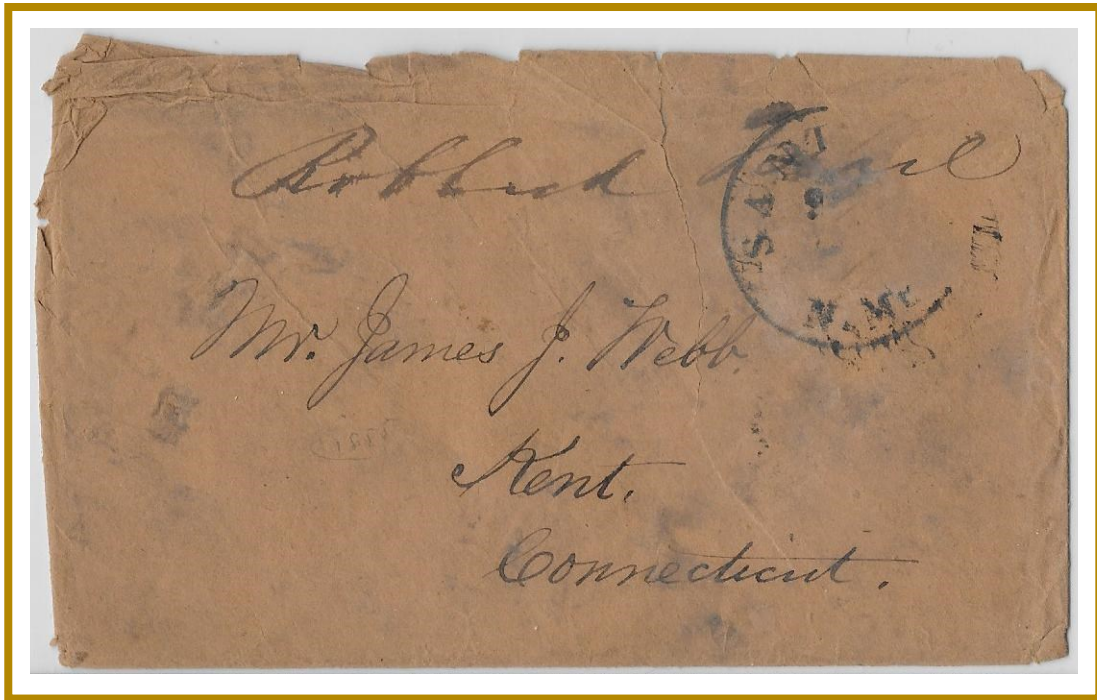 Robbed Mail
SANT
N. Mex
Mr. James J. Webb.
Kent.
Connecticut.